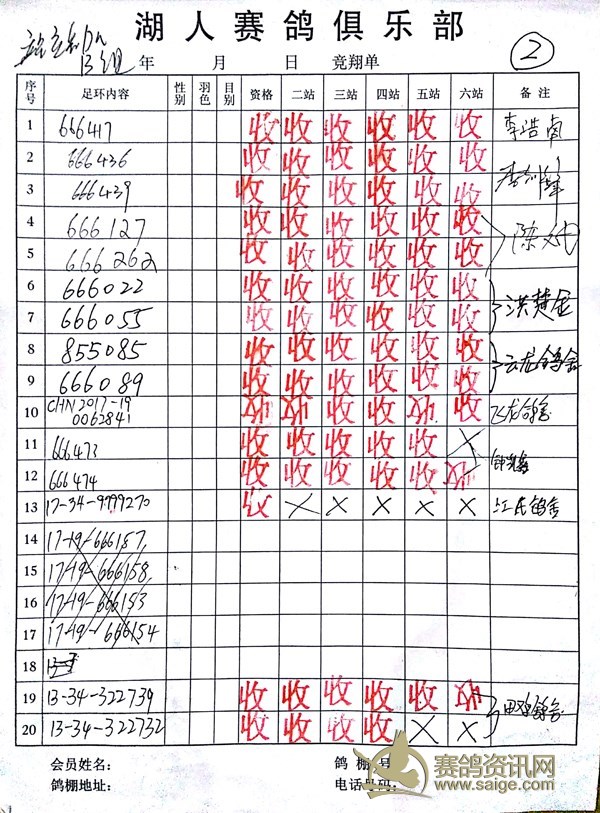 湖人赛鸽俱乐部
B组 年 月 日 竞翔单 ②
序号 足环内容 性别 羽色 目别 资格 二站 三站 四站 五站 六站 备注
1 666417 收 收 收 收 收 收 李浩南
2 666436 收 收 收 收 收 收
3 666439 收 收 收 收 收 收
4 666127 收 收 收 收 收 收 陈
5 666262 收 收 收 收 收 收
6 666022 收 收 收 收 收 收 洪楚金
7 666055 收 收 收 收 收 收
8 855085 收 收 收 收 收 收 云龙鸽舍
9 666089 收 收 收 收 收 收
10 CHN2017-19 0062841 收 收 收 收 收 收 飞龙鸽舍
11 666473 收 收 收 收 收 X
12 666474 收 收 收 收 收 收
13 17-34-9799270 收 X X X X X 江氏鸽舍
14 17-19-666157
15 17-19-666158
16 17-19-666153
17 17-19-666154
18
19 13-34-322739 收 收 收 收 收 收
20 13-34-322732 收 收 收 收 X X
会员姓名： 鸽棚号
鸽棚地址： 电话号码：
赛鸽资讯网
www.saige.com